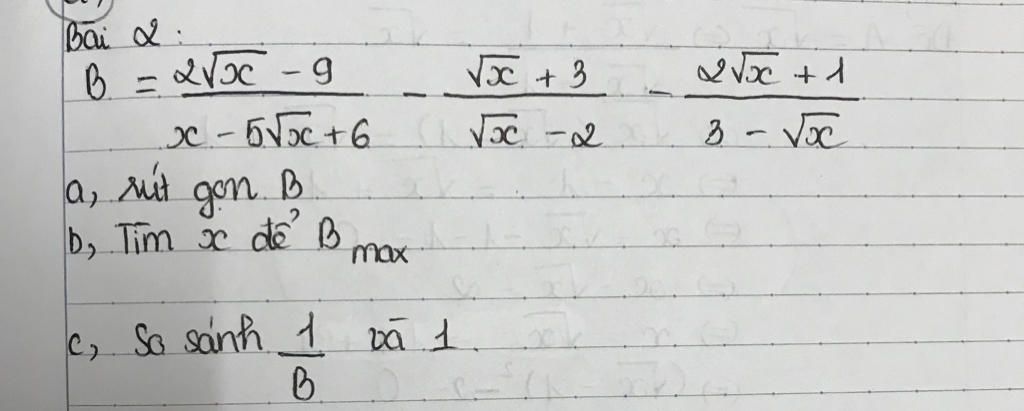 Bài 2:
B = \frac{2\sqrt{x} - 9}{x - 5\sqrt{x} + 6} - \frac{\sqrt{x} + 3}{\sqrt{x} - 2} - \frac{2\sqrt{x} + 1}{3 - \sqrt{x}}
a, rút gọn B
b, Tìm x để B max
c, So sánh \frac{1}{B} và 1.